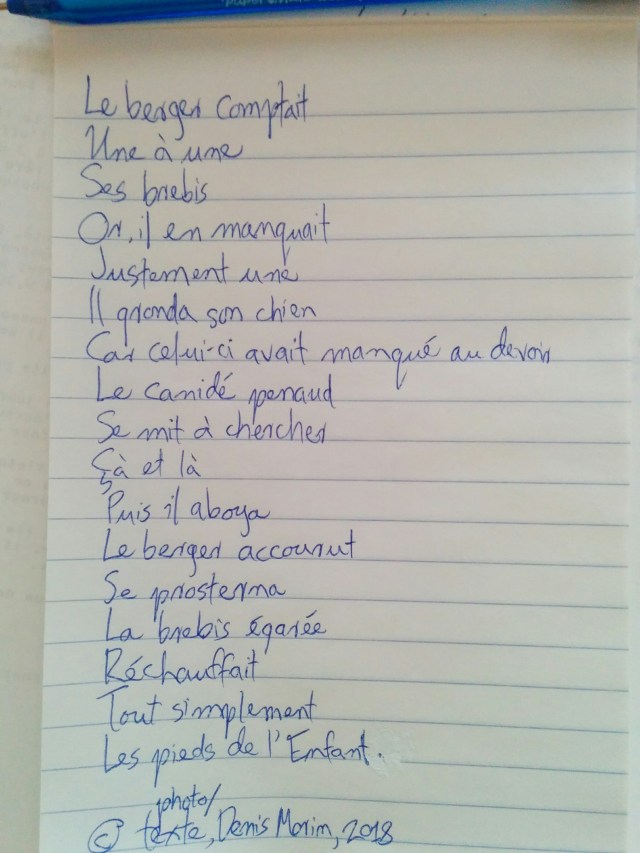 Le berger comptait
Une à une
Ses brebis
Or, il en manquait
Justement une
Il gronda son chien
Car celui-ci avait manqué au devoir
Le canidé penaud
Se mit à chercher
Çà et là
Puis il aboya
Le berger accourut
Se prosterna
La brebis égarée
Réchauffait
Tout simplement
Les pieds de l'Enfant.
photo/
© texte, Denis Morin, 2018